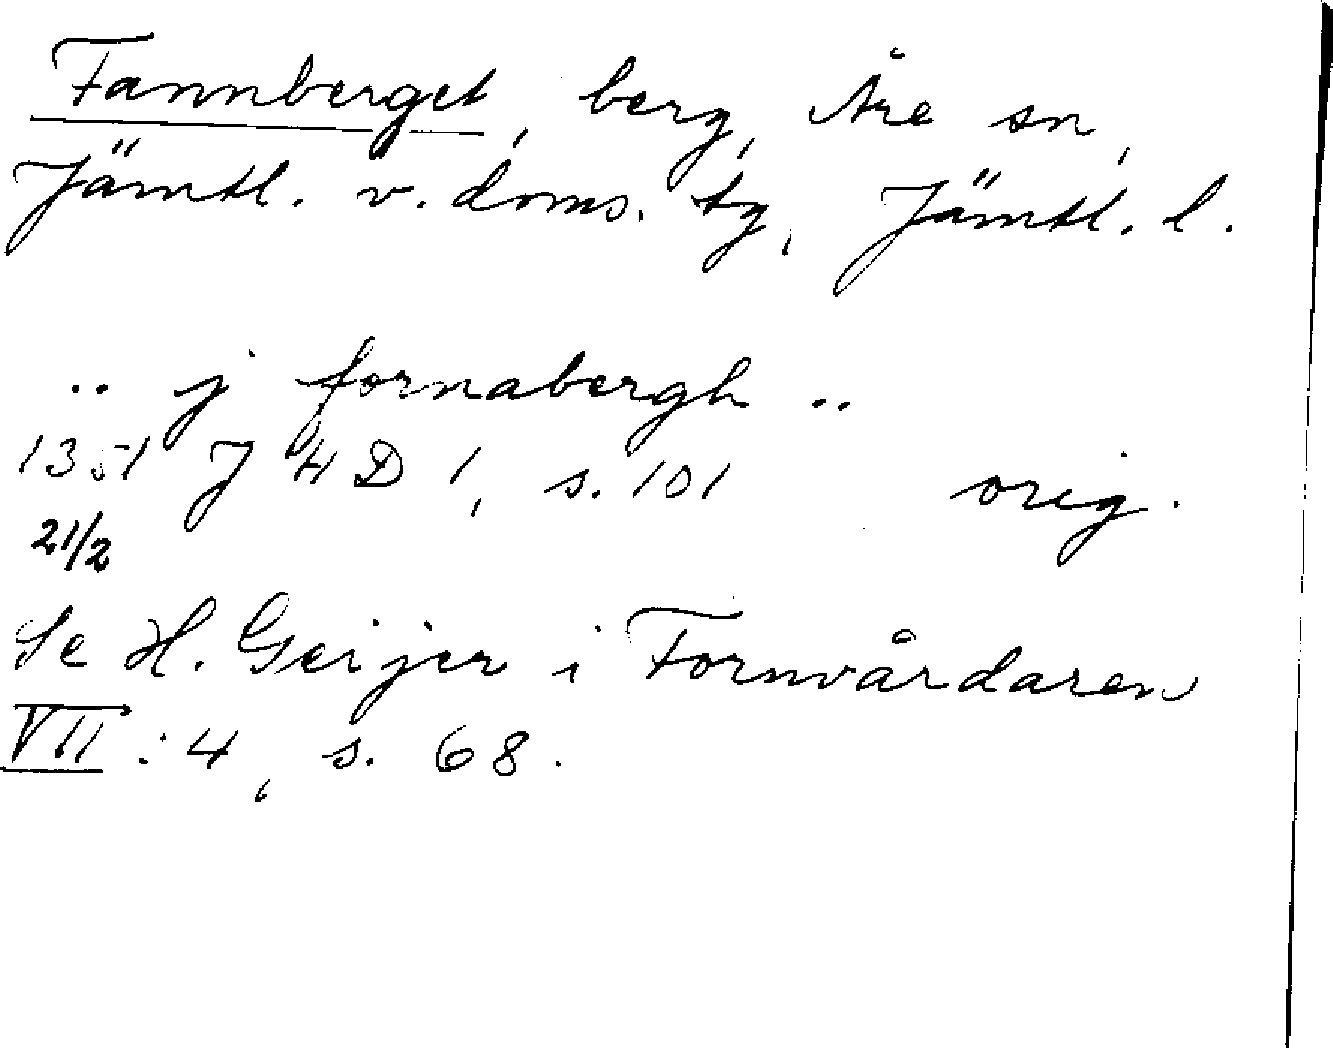 Fannberget, berg, Åre sn,
Jämtl. v. doms. tg, Jämtl. l.
.. j fornabergh ..
1351 J H D 1, s. 101 orig.
21/2
Se H. Geijer i Fornvårdaren
VII : 4, s. 68.